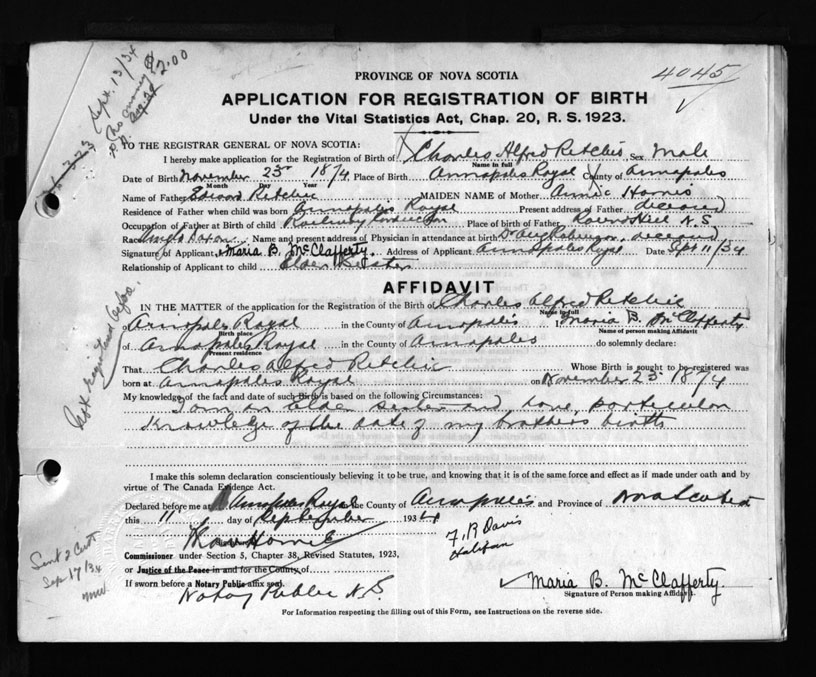 Sept. 13/34
No money $2.00
4045
PROVINCE OF NOVA SCOTIA
APPLICATION FOR REGISTRATION OF BIRTH
Under the Vital Statistics Act, Chap. 20, R. S. 1923.
TO THE REGISTRAR GENERAL OF NOVA SCOTIA:
I hereby make application for the Registration of Birth of Charles Alfred Ritchie Sex Male
Name in full
Date of Birth November 23rd 1874 Place of Birth Annapolis Royal County of Annapolis
Month Day Year
Name of Father Edward Ritchie MAIDEN NAME of Mother Annie
Residence of Father when child was born Annapolis Royal Present address of Father deceased
Occupation of Father at Birth of child Railway Conductor Place of birth of Father Round Hill N.S
Race Anglo Saxon Name and present address of Physician in attendance at birth Dr Aug Robinson, deceased
Signature of Applicant Maria B. McClafferty Address of Applicant Annapolis Royal Date Sept 11/34
Relationship of Applicant to child Elder Sister
AFFIDAVIT
IN THE MATTER of the application for the Registration of the Birth of Charles Alfred Ritchie
Name in full
of Annapolis Royal in the County of Annapolis I, Maria B. McClafferty
Birth place Name of person making Affidavit
of Annapolis Royal in the County of Annapolis do solemnly declare:
Present residence
That Charles Alfred Ritchie Whose Birth is sought to be registered was
born at Annapolis Royal on November 23rd 1874
My knowledge of the fact and date of such Birth is based on the following Circumstances:
I am an Elder sister and have particular
Knowledge of the date of my brothers birth
Not registered before.
I make this solemn declaration conscientiously believing it to be true, and knowing that it is of the same force and effect as if made under oath and by
virtue of The Canada Evidence Act.
Declared before me at Annapolis Royal in the County of Annapolis and Province of Nova Scotia
this 11 day of September 1934
F. R Davis
Halifax
Commissioner under Section 5, Chapter 38, Revised Statutes, 1923,
or Justice of the Peace in and for the County of
If sworn before a Notary Public affix seal.
Notary Public N.S
Maria B. McClafferty.
Signature of Person making Affidavit.
Sent 2 Cert
Sep 17/34
For Information respecting the filling out of this Form, see Instructions on the reverse side.